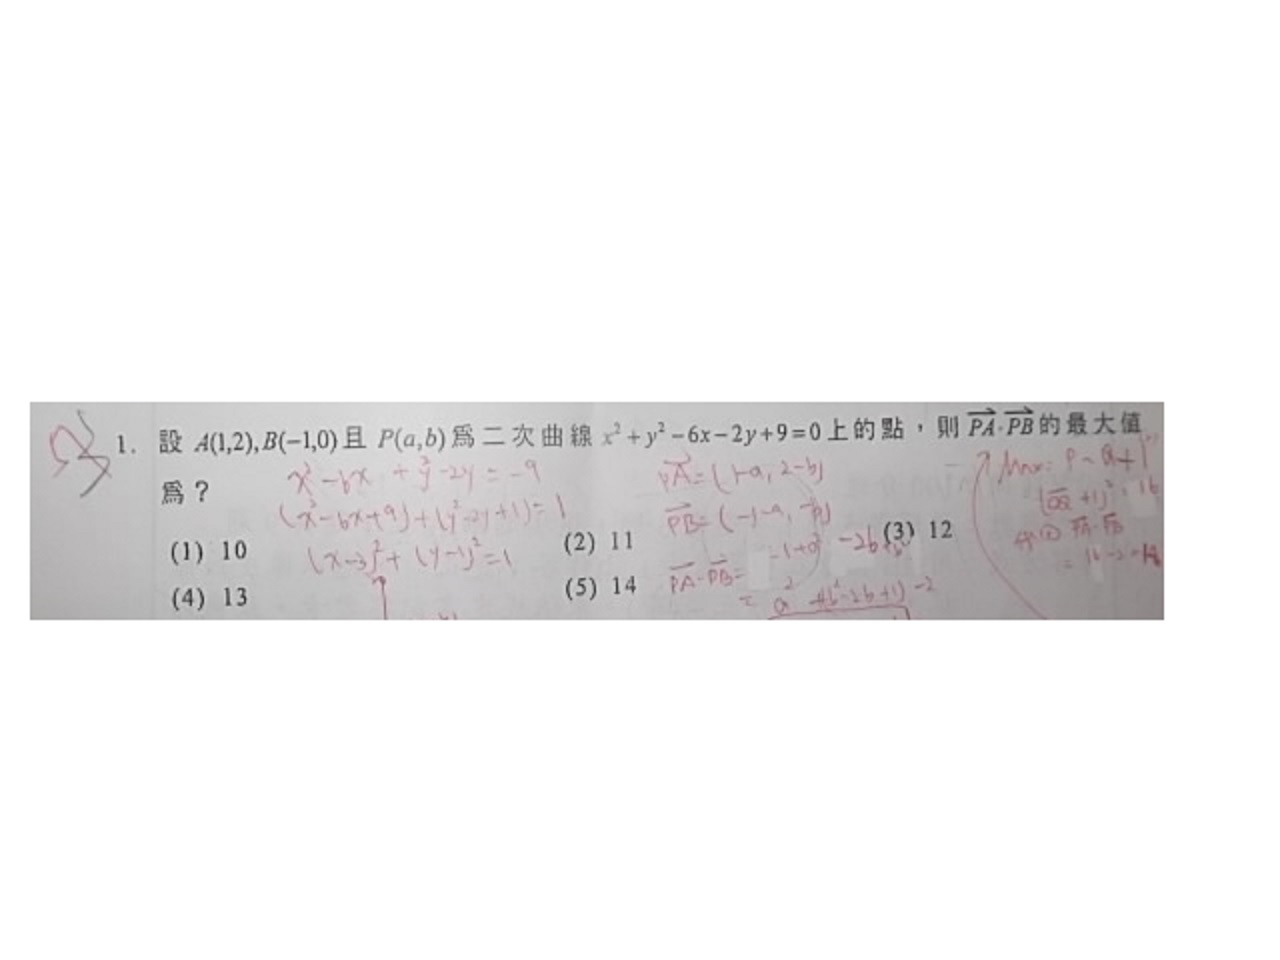 1. 設 A(1,2), B(−1,0) 且 P(a,b) 爲二次曲線 x²+y²−6x−2y+9=0 上的點，則 PA·PB 的最大值
爲？
(1) 10 (2) 11 (3) 12
(4) 13 (5) 14
x²-6x + y²-2y = -9
(x²-6x+9)+(y²-2y+1)=1
(x-3)²+(y-1)²=1
PA=(1-a, 2-b)
PB=(-1-a, -b)
PA·PB= -1+a² -2b+b²
= a²+(b²-2b+1)-2